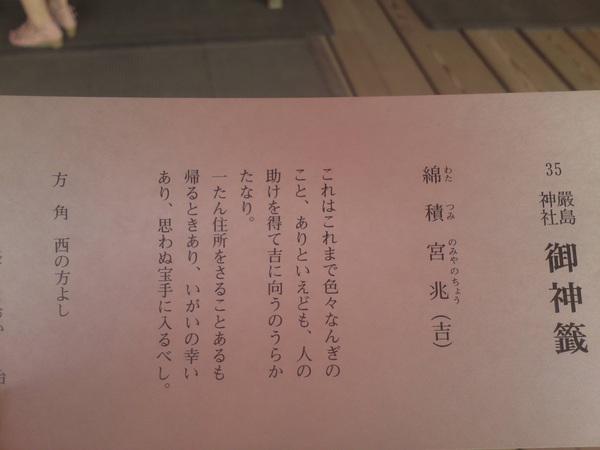 35
厳島神社
御神籤
綿積宮兆(吉)
わたつみのみやのちょう
これはこれまで色々なんぎの
こと、ありといえども、人の
助けを得て吉に向うのうらか
たなり。
一たん住所をさることあるも
帰るときあり、いがいの幸い
あり、思わぬ宝手に入るべし。
方角 西の方よし